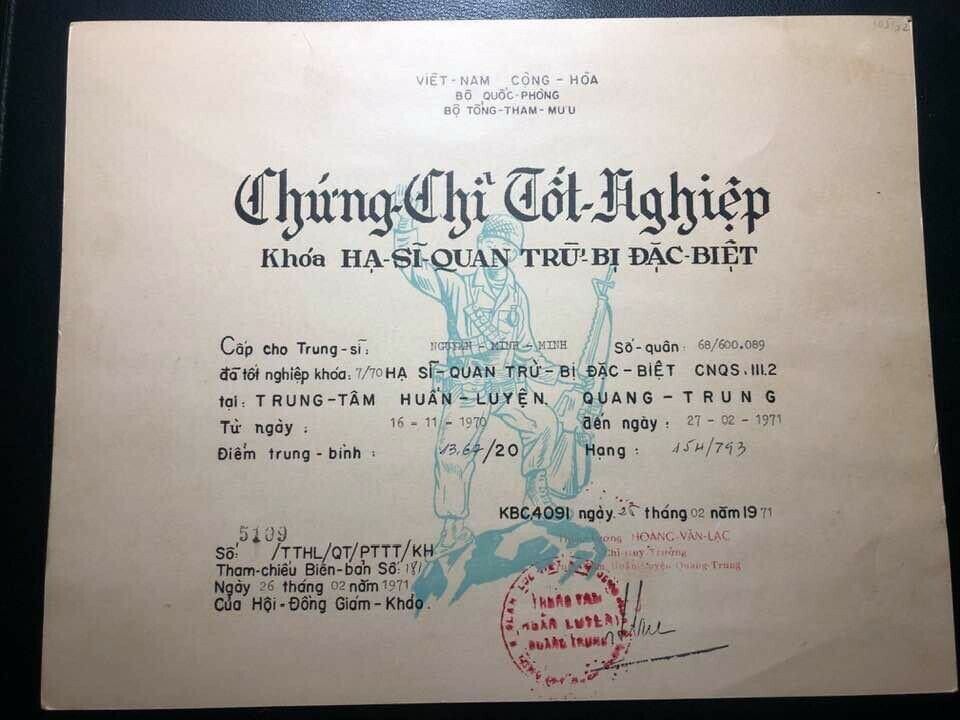 VIỆT-NAM CỘNG-HÒA
BỘ QUỐC-PHÒNG
BỘ TỔNG-THAM-MƯU
Chứng-Chỉ Tốt-Nghiệp
Khóa HẠ-SĨ-QUAN TRỪ-BỊ ĐẶC-BIỆT
Cấp cho Trung-sĩ: NGUYỄN - MINH - MINH Số-quân: 68/600.089
đã tốt nghiệp khóa: 7/70 HẠ SĨ-QUAN TRỪ-BỊ ĐẶC-BIỆT CNQS.III.2
tại: TRUNG-TÂM HUẤN-LUYỆN QUANG-TRUNG
Từ ngày: 16-11-1970 đến ngày: 27-02-1971
Điểm trung-bình: 13,67/20 Hạng: 154/793
KBC4091 ngày tháng 02 năm 1971
HOÀNG-VĂN-LẠC
Chỉ-Huy Trưởng
Huấn-Luyện Quang-Trung
5109
Số: /TTHL/QT/PTTT/KH
Tham-chiếu Biên-bản Số: 181
Ngày 26 tháng 02 năm 1971
Của Hội-Đồng Giám-Khảo.
TRUNG TÂM
HUẤN LUYỆN
QUANG TRUNG